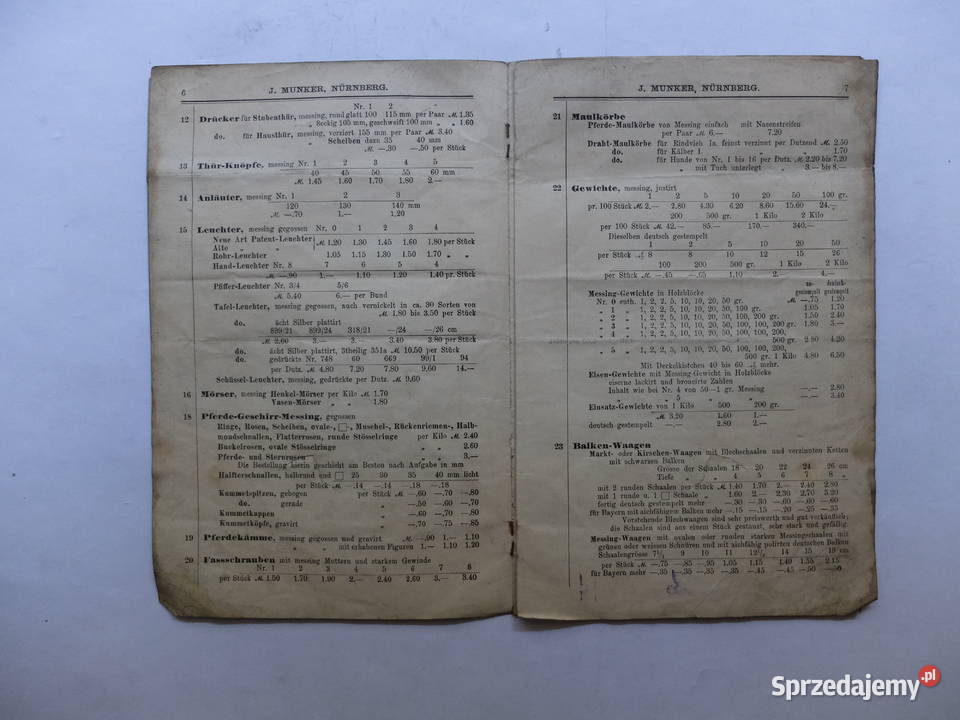 6 J. MUNKER, NÜRNBERG.
Nr. 1 2
12 Drücker für Stubenthür, messing, rund glatt 100 115 mm per Paar M. 1.35
„ 8eckig 105 mm, geschweift 100 mm „ „ 1.60
do. für Hausthür, messing, verziert 155 mm per Paar M. 3.40
„ Scheiben dazu 35 40 mm
M. —.30 —.50 per Stück
13 Thür-Knöpfe, messing Nr. 1 2 3 4 5
40 45 50 55 60 mm
M. 1.45 1.60 1.70 1.80 2.—
14 Anläuter, messing Nr. 1 2 3
120 130 140 mm
M. —.70 1.— 1.20
15 Leuchter, messing gegossen Nr. 0 1 2 3 4
Neue Art Patent-Leuchter M. 1.20 1.30 1.45 1.60 1.80 per Stück
Alte „ „
Rohr-Leuchter 1.05 1.15 1.30 1.50 1.70 „ „
Hand-Leuchter Nr. 8 7 6 5 4
M. —.90 1.— 1.10 1.20 1.40 pr. Stück
Pfiffer-Leuchter Nr. 3/4 5/6
M. 5.40 6.— per Bund
Tafel-Leuchter, messing gegossen, auch vernickelt in ca. 30 Sorten von
M. 1.80 bis 3.50 per Stück
do. ächt Silber plattirt
899/21 899/24 318/21 —/24 —/26 cm
M. 2.60 3.— 3.— 3.40 3.80 per Stück
do. ächt Silber plattirt, 3theilig 351a M. 10.50 per Stück
do. gedrückte Nr. 748 60 669 99/1 94
per Dutz. M. 4.80 7.20 7.80 9.60 14.—
Schüssel-Leuchter, messing, gedrückte per Dutz. M. 9.60
16 Mörser, messing Henkel-Mörser per Kilo M. 1.70
Vasen-Mörser „ „ 1.80
18 Pferde-Geschirr-Messing, gegossen
Ringe, Rosen, Scheiben, ovale-, □-, Muschel-, Rückenriemen-, Halb-
mondschnallen, Flatterrosen, runde Stösselringe per Kilo M. 2.40
Buckelrosen, ovale Stösselringe „ „ 2.60
Pferde- und Sternrosen „ „ 3.—
Die Bestellung hierin geschieht am Besten nach Aufgabe in mm
Halfterschnallen, halbrund und □ 25 30 35 40 mm licht
per Stück M. —.14 —.14 —.18 —.18
Kummetspitzen, gebogen per Stück M. —.60 —.70 —.80
do. gerade „ —.50 —.60 —.70
Kummetkappen „ —.60 —.70 —.80
Kummetköpfe, gravirt „ —.70 —.75 —.85
19 Pferdekämme, messing gegossen und gravirt M. —.90 1.— 1.10
„ „ mit erhabenen Figuren 1.— 1.10 1.20
20 Fassschrauben mit messing Muttern und starkem Gewinde
Nr. 1 2 3 4 5 6 7 8
per Stück M. 1.50 1.70 1.90 2.— 2.40 2.60 3.— 3.40
J. MUNKER, NÜRNBERG. 7
21 Maulkörbe
Pferde-Maulkörbe von Messing einfach mit Nasenstreifen
per Paar M. 6.— 7.20
Draht-Maulkörbe für Rindvieh Ia. feinst verzinnt per Dutzend M. 2.50
do. für Kälber I. „ „ 1.70
do. für Hunde von Nr. 1 bis 16 per Dutz. M. 2.20 bis 7.20
„ mit Tuch unterlegt „ 3.— bis 8.—
22 Gewichte, messing, justirt
1 2 5 10 20 50 100 gr.
pr. 100 Stück M. 2.— 2.80 4.30 6.20 8.60 15.60 24.—
200 500 gr. 1 Kilo 2 Kilo
per 100 Stück M. 42.— 85.— 170.— 340.—
Dieselben deutsch gestempelt
1 2 5 10 20 50
per Stück 8 8 10 12 15 26
100 200 500 gr. 1 Kilo 2 Kilo
per Stück M. —.45 —.65 1.10 2.— 4.—
Messing-Gewichte in Holzblöcke
Nr. 0 enth. 1, 2, 2, 5, 10, 10, 20, 50 gr. M. —.75 1.20
„ 1 „ 1, 2, 2, 5, 10, 10, 20, 50, 100 gr. 1.05 1.70
„ 2 „ 1, 2, 2, 5, 10, 10, 20, 50, 100, 200 gr. 1.50 2.40
„ 3 „ 1, 2, 2, 5, 10, 10, 20, 50, 100, 100, 200 gr. 1.80 3.—
„ 4 „ 1, 2, 2, 5, 10, 10, 20, 50, 100, 100, 200,
500 gr. 2.80 4.20
„ 5 „ 1, 2, 2, 5, 10, 10, 20, 50, 100, 100, 200,
500 gr. 1 Kilo 4.80 6.50
Mit Deckelkästchen 40 bis 60 mehr.
Eisen-Gewichte mit Messing-Gewicht in Holzblöcke
eiserne lackirt und broncirte Zahlen
Inhalt wie bei Nr. 4 von 50—1 gr. Messing —.— 2.80
„ „ 5 „ —.— 3.40
Einsatz-Gewichte von 1 Kilo 500 200 gr.
M. 3.20 1.60 1.—
deutsch gestempelt —.— 2.80 2.—
23 Balken-Waagen
Markt- oder Kirschen-Waagen mit Blechschaalen und verzinnten Ketten
mit schwarzen Balken
Grösse der Schaalen 18 20 22 24 26 cm
Tiefe „ 4 5 6 7 8 „
mit 2 runden Schaalen per Stück M. 1.40 1.70 2.— 2.40 2.80
mit 1 runde u. 1 □ Schaale „ 1.60 2.— 2.30 2.70 3.20
fertig deutsch gestempelt mehr —.30 —.30 —.60 —.60 —.60
für Bayern mit aichfähigen Balken mehr —.15 —.15 —.20 —.25 —.35
Vorstehende Blechwaagen sind sehr preiswerth und gut verkäuflich;
die Schaalen sind aus einem Stück gestanzt, sehr stark und gefällig.
Messing-Waagen mit ovalen oder runden starken Messingschaalen mit
grünen oder weissen Schnüren und mit aichfähig polirten deutschen Balken
Schaalengrösse 7½ 9 10 11 12½ 14 15 19 cm
per Stück M. —.75 —.85 —.95 1.05 1.15 1.40 1.55 2.15
für Bayern mehr —.35 —.35 —.35 —.35 —.45 —.45 —.50 —.50
Sprzedajemy.pl